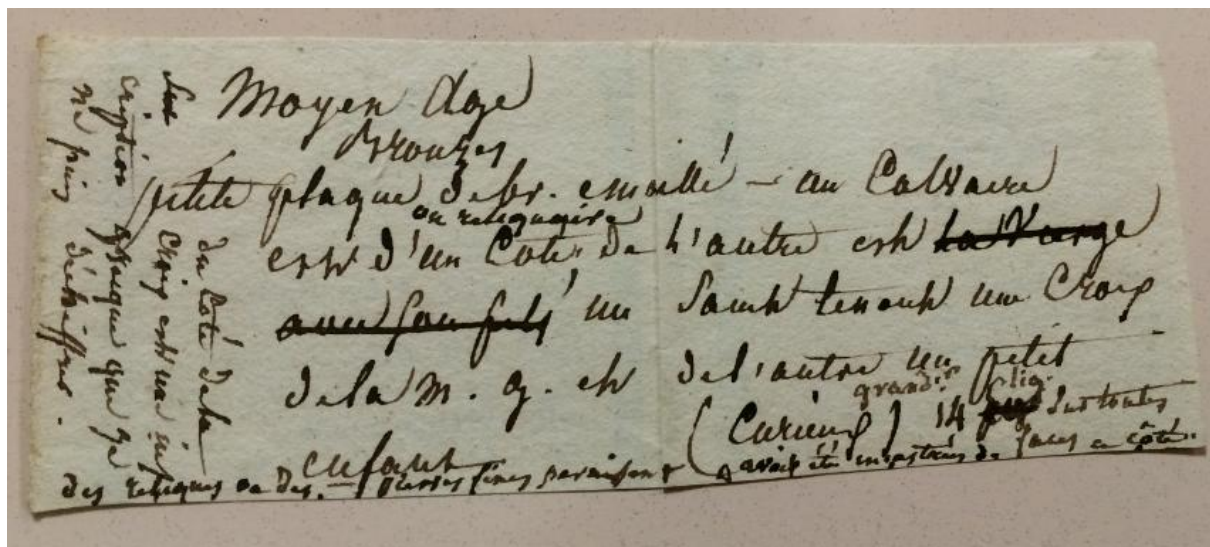 Moyen Age
Bronzes
petite plaque de br. emaillé – un Calvaire
ou reliquaire
est d'un Coté de L'autre est la Vierge
avec son fils un Saint tenant une Croix
de la m. g. et de l'autre un petit
enfant (Curieux) grand.r 14 lig. sur toutes
des reliques ou des pierres fines paraissent avoir été incrustées de faces en côté.
du Coté de la
Croix est une ins
cription grecque que je
ne puis déchiffrer.